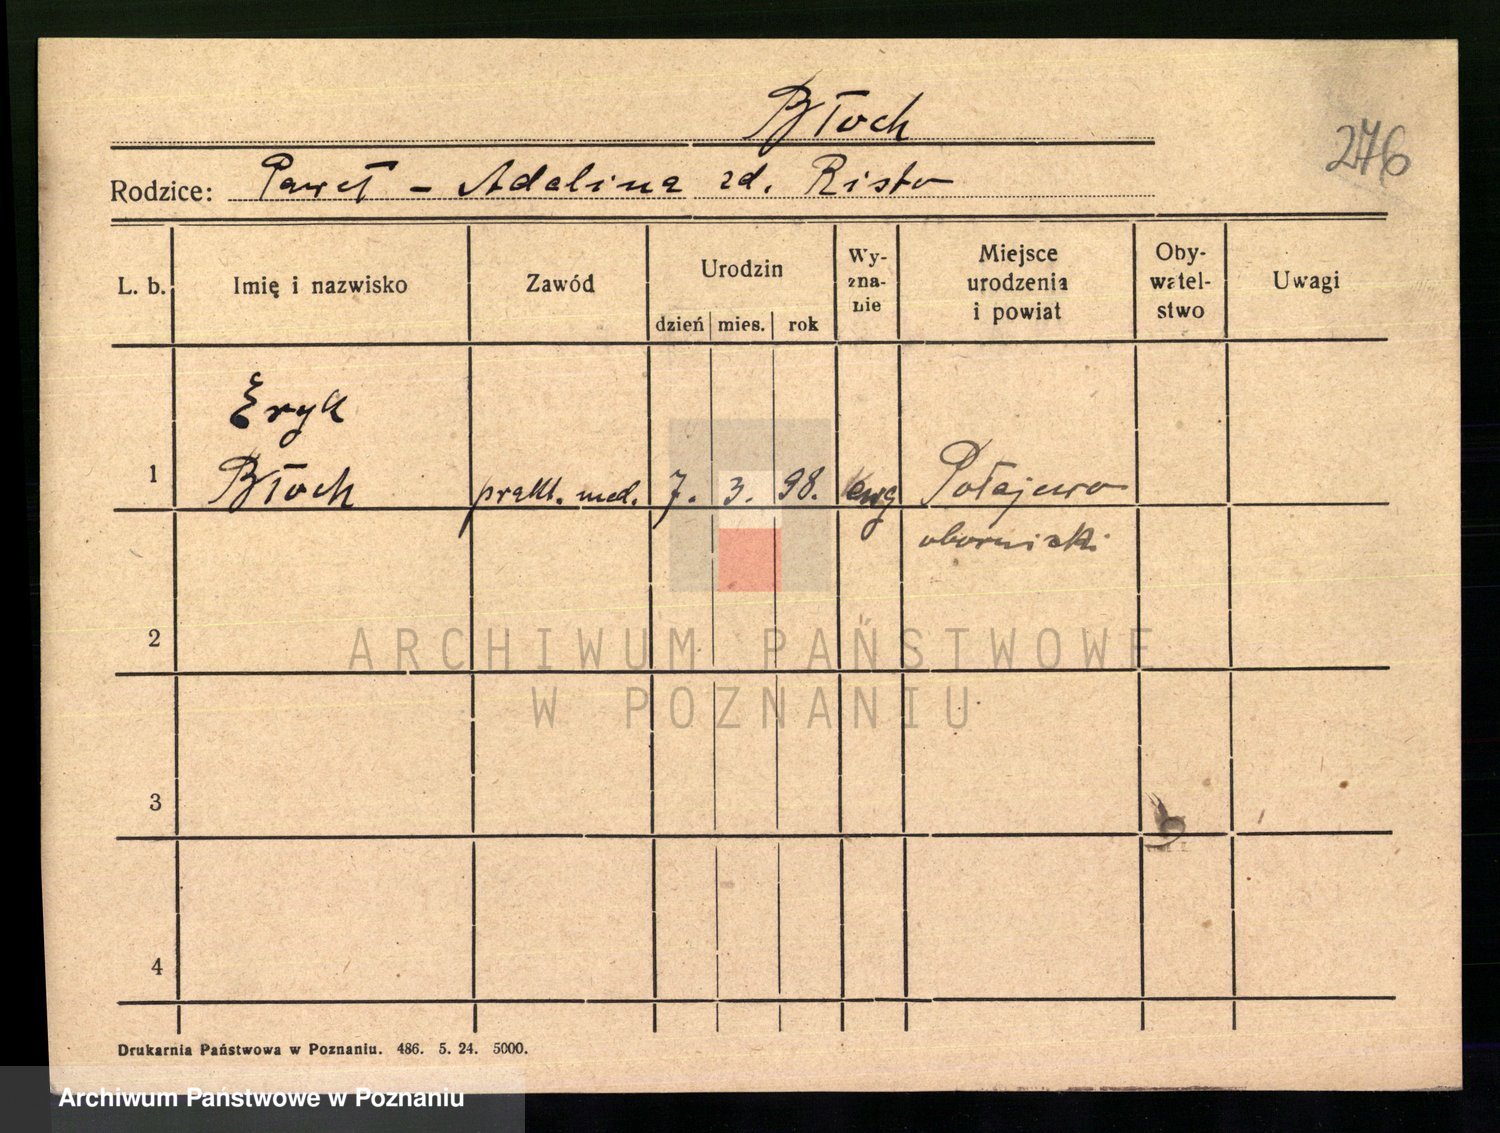 Błoch
276
Rodzice: Paweł - Adelina zd. Risto
L. b. Imię i nazwisko Zawód Urodzin dzień mies. rok Wy-zna-nie Miejsce urodzenia i powiat Oby-watel-stwo Uwagi
Eryk
1 Błoch prakt. med. 7. 3. 98. ewg Połajewo
obornicki
2
ARCHIWUM PAŃSTWOWE
W POZNANIU
3
4
Drukarnia Państwowa w Poznaniu. 486. 5. 24. 5000.
Archiwum Państwowe w Poznaniu